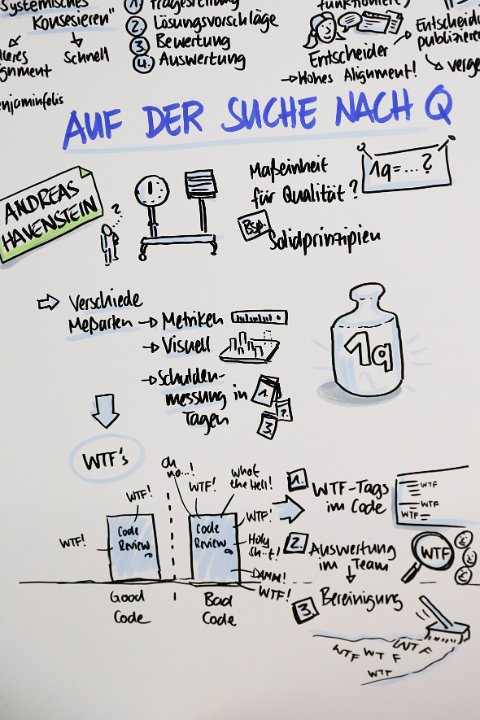 Systemisches
Konsesieren"
Schnell
1. Fragestellung
2. Lösungsvorschläge
3. Bewertung
4. Auswertung
funktioniert
Entscheider
→ Hohes Alignment!
Entscheidu
publizieren
verge
lleres
ignment
enjaminfelis
AUF DER SUCHE NACH Q
ANDREAS
HAVENSTEIN
?
Maßeinheit
für Qualität?
1q=...?
Bsp.
Solidprinzipien
Verschiede
Meßarten → Metriken
→ Visuell
→ Schulden-
messung in
Tagen
1.
2.
3.
1q
WTF's
WTF!
WTF!
Code
Review
Good
Code
Oh
no...!
WTF!
what
the Hell!
WTF!
Holy
Sh..t!
DAMM!
WTF!
Code
Review
Bad
Code
1. WTF-Tags
im Code
WTF
WTF
WTF
2. Auswertung
im Team
WTF
3. Bereinigung
WTF WTF WTF
WTF